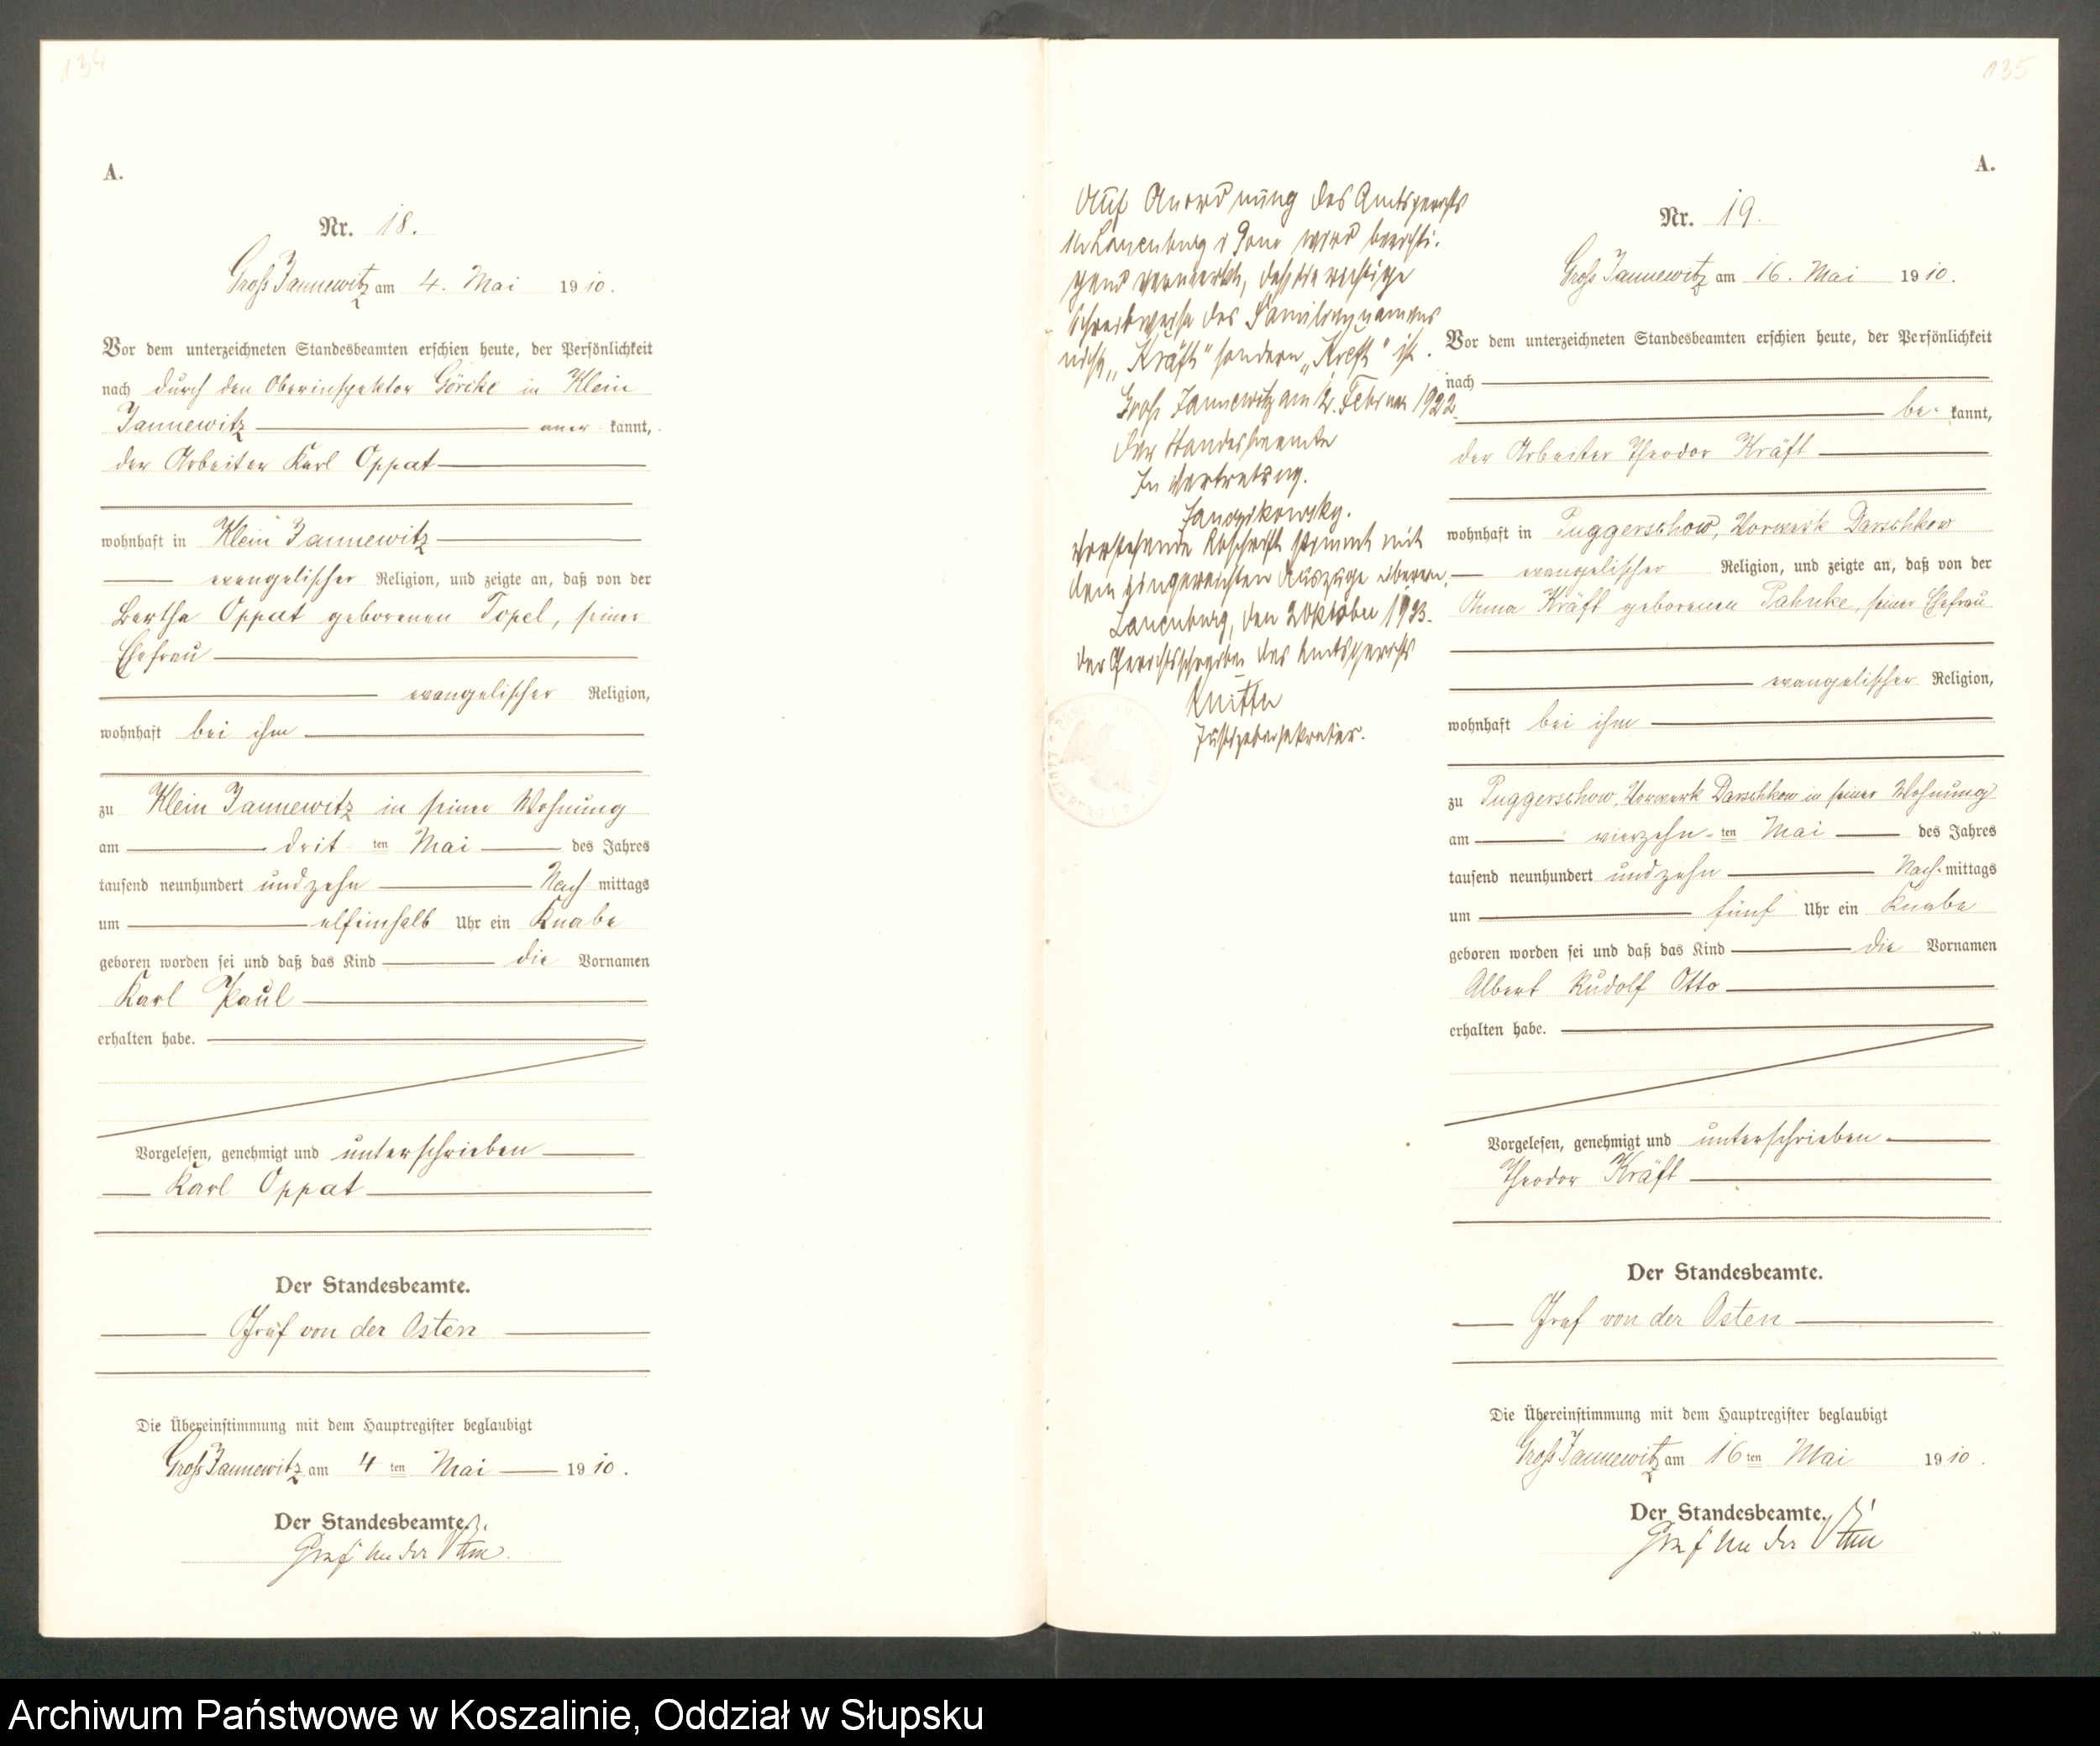 134
A.
Nr. 18.
Groß Jannewitz am 4. Mai 1910.
Vor dem unterzeichneten Standesbeamten erschien heute, der Persönlichkeit
nach durch den Oberinspektor Görcke in Klein
Jannewitz aner kannt,
der Arbeiter Karl Oppat
wohnhaft in Klein Jannewitz
evangelischer Religion, und zeigte an, daß von der
Bertha Oppat geborenen Topel, seiner
Ehefrau
evangelischer Religion,
wohnhaft bei ihm
zu Klein Jannewitz in seiner Wohnung
am drit ten Mai des Jahres
tausend neunhundert undzehn Nach mittags
um elfeinhalb Uhr ein Knabe
geboren worden sei und daß das Kind die Vornamen
Karl Paul
erhalten habe.
Vorgelesen, genehmigt und unterschrieben
Karl Oppat
Der Standesbeamte.
Graf von der Osten
Die Übereinstimmung mit dem Hauptregister beglaubigt
Groß Jannewitz am 4 ten Mai 1910.
Der Standesbeamte.
Graf von der Osten
135
A.
Auf Anordnung des Amtsgerichts
in Lauenburg i Pom wird berichti-
gend vermerkt, daß die richtige
Schreibweise des Familiennamens
nicht „Kräft" sondern „Kreft" ist.
Groß Jannewitz am 12. Februar 1922.
Der Standesbeamte
In Vertretung.
Vorstehende Abschrift stimmt mit
dem eingereichten Auszuge überein.
Lauenburg, den 2 Oktober 1923.
Der Gerichtsschreiber des Amtsgerichts
Justizobersekretär.
Nr. 19.
Groß Jannewitz am 16. Mai 1910.
Vor dem unterzeichneten Standesbeamten erschien heute, der Persönlichkeit
nach
be- kannt,
der Arbeiter Theodor Kräft
wohnhaft in Puggerschow, Vorwerk Darschkow
evangelischer Religion, und zeigte an, daß von der
Anna Kräft geborenen Pahnke, seiner Ehefrau
evangelischer Religion,
wohnhaft bei ihm
zu Puggerschow, Vorwerk Darschkow in seiner Wohnung
am vierzehn- ten Mai des Jahres
tausend neunhundert undzehn Nach- mittags
um fünf Uhr ein Knabe
geboren worden sei und daß das Kind die Vornamen
Albert Rudolf Otto
erhalten habe.
Vorgelesen, genehmigt und unterschrieben
Theodor Kräft
Der Standesbeamte.
Graf von der Osten
Die Übereinstimmung mit dem Hauptregister beglaubigt
Groß Jannewitz am 16 ten Mai 1910.
Der Standesbeamte.
Graf von der Osten
Archiwum Państwowe w Koszalinie, Oddział w Słupsku